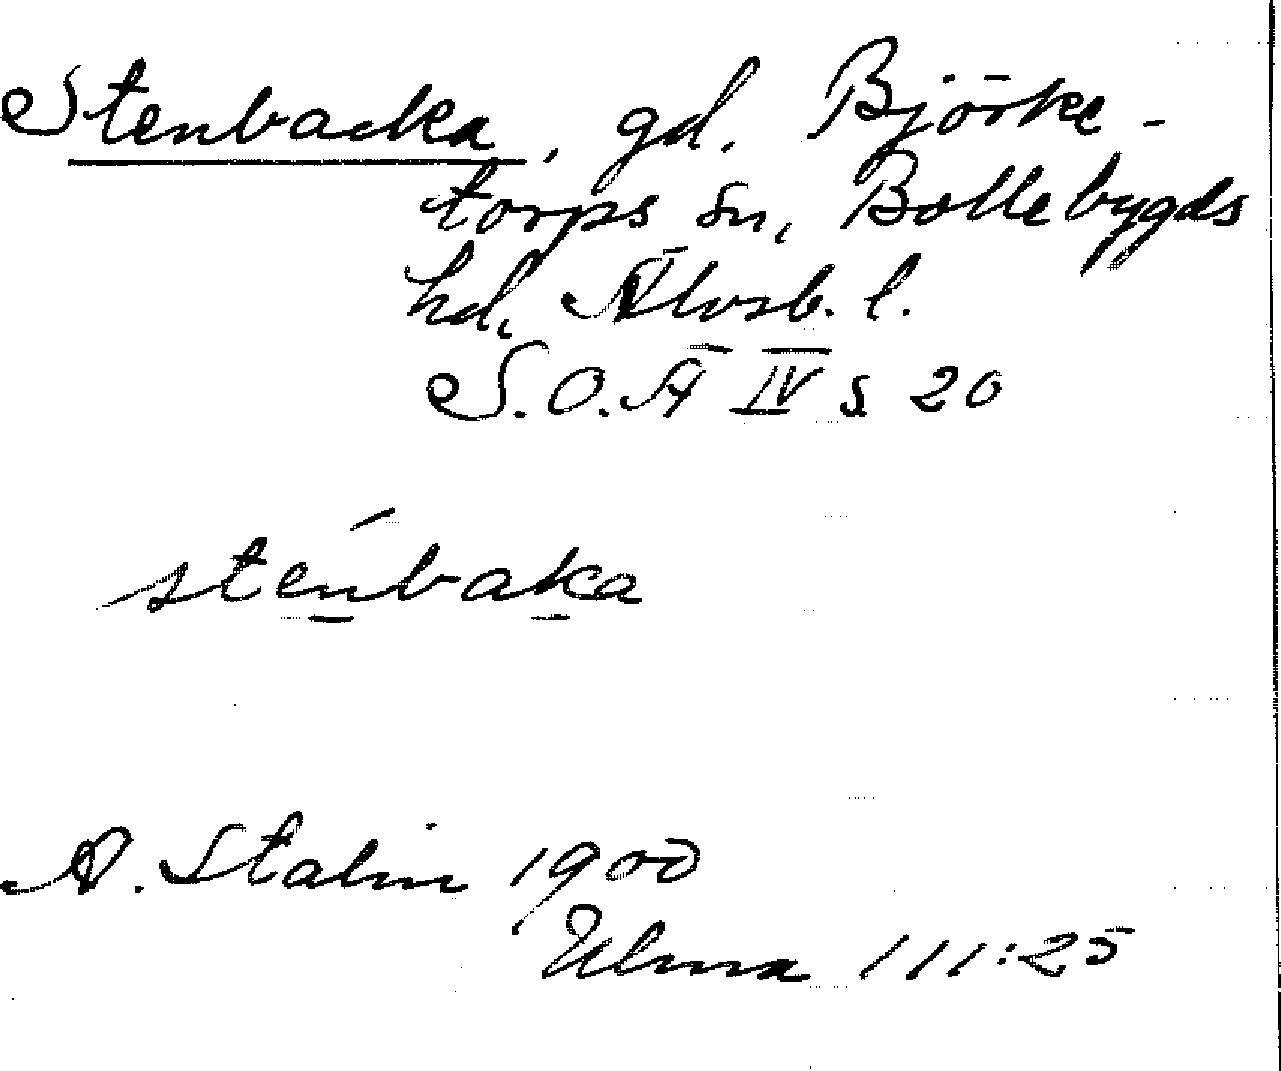 Stenbacka, gd. Björke-
torps sn, Bollebygds
hd, Älvsb. l.
S.O.Ä IV s 20
sténbaka
A. Stalin 1900
Ulma 111:25